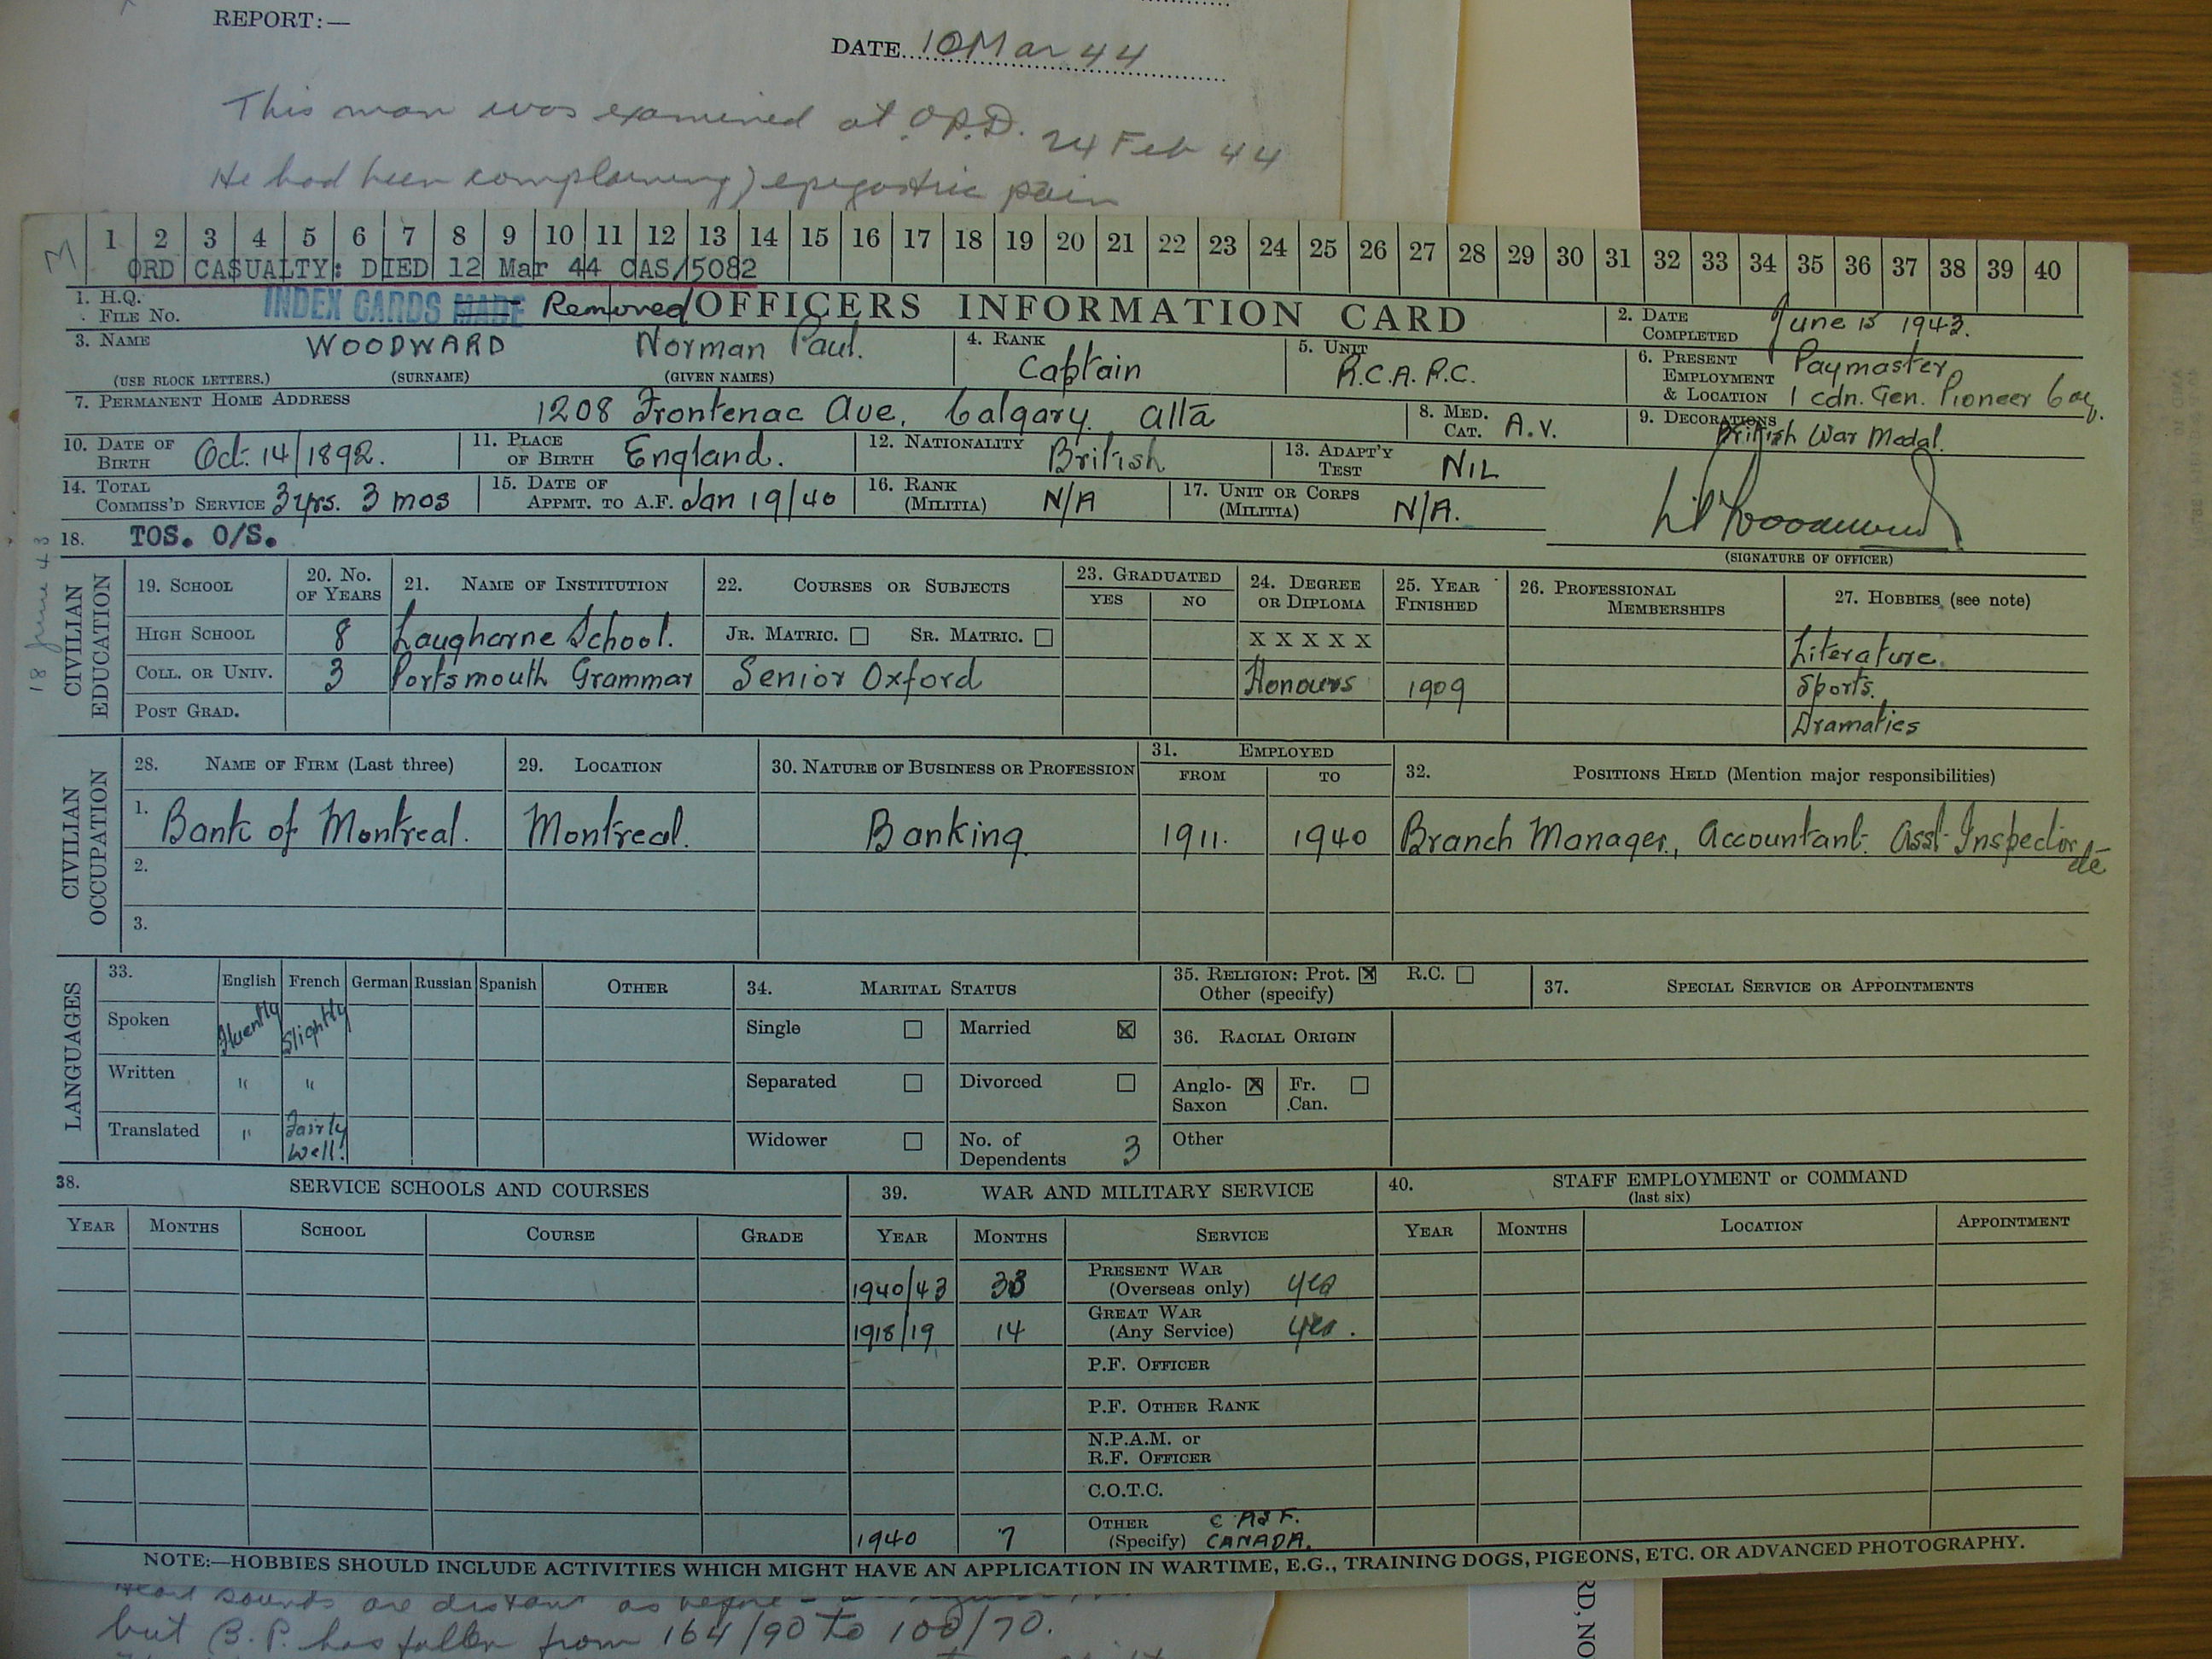 REPORT:—
DATE 10 Mar 44
This man was examined at O.P.D. 24 Feb 44
He had been complaining epigastric pain
M 1 2 3 4 5 6 7 8 9 10 11 12 13 14 15 16 17 18 19 20 21 22 23 24 25 26 27 28 29 30 31 32 33 34 35 36 37 38 39 40
ORD CASUALTY: DIED 12 Mar 44 CAS/5082
1. H.Q. FILE No. INDEX CARDS MADE Removed OFFICERS INFORMATION CARD 2. DATE COMPLETED June 15 1943.
3. NAME WOODWARD Norman Paul. 4. RANK Captain 5. UNIT R.C.A.P.C. 6. PRESENT EMPLOYMENT & LOCATION Paymaster, 1 Cdn. Gen. Pioneer Coy.
(USE BLOCK LETTERS.) (SURNAME) (GIVEN NAMES)
7. PERMANENT HOME ADDRESS 1208 Frontenac Ave. Calgary. Alta 8. MED. CAT. A.V. 9. DECORATIONS British War Medal.
10. DATE OF BIRTH Oct. 14/1892. 11. PLACE OF BIRTH England. 12. NATIONALITY British 13. ADAPT'Y TEST NIL
14. TOTAL COMMISS'D SERVICE 3 yrs. 3 mos 15. DATE OF APPMT. TO A.F. Jan 19/40 16. RANK (MILITIA) N/A 17. UNIT OR CORPS (MILITIA) N/A.
18. TOS. O/S.
(SIGNATURE OF OFFICER)
18 June 43
CIVILIAN EDUCATION
19. SCHOOL 20. No. OF YEARS 21. NAME OF INSTITUTION 22. COURSES OR SUBJECTS 23. GRADUATED YES NO 24. DEGREE OR DIPLOMA 25. YEAR FINISHED 26. PROFESSIONAL MEMBERSHIPS 27. HOBBIES (see note)
HIGH SCHOOL 8 Laugharne School. JR. MATRIC. ☐ SR. MATRIC. ☐ X X X X X Literature.
COLL. OR UNIV. 3 Portsmouth Grammar Senior Oxford Honours 1909 Sports.
POST GRAD. Dramatics
CIVILIAN OCCUPATION
28. NAME OF FIRM (Last three) 29. LOCATION 30. NATURE OF BUSINESS OR PROFESSION 31. EMPLOYED FROM TO 32. POSITIONS HELD (Mention major responsibilities)
1. Bank of Montreal. Montreal. Banking 1911. 1940 Branch Manager, Accountant. Asst. Inspector etc
2.
3.
LANGUAGES
33. English French German Russian Spanish OTHER
Spoken Fluently Slightly
Written " "
Translated " Fairly Well.
34. MARITAL STATUS
Single ☐ Married ☒
Separated ☐ Divorced ☐
Widower ☐ No. of Dependents 3
35. RELIGION: Prot. ☒ R.C. ☐
Other (specify)
36. RACIAL ORIGIN
Anglo-Saxon ☒ Fr. Can. ☐
Other
37. SPECIAL SERVICE OR APPOINTMENTS
38. SERVICE SCHOOLS AND COURSES
YEAR MONTHS SCHOOL COURSE GRADE
39. WAR AND MILITARY SERVICE
YEAR MONTHS SERVICE
1940/43 33 PRESENT WAR (Overseas only) yes
1918/19 14 GREAT WAR (Any Service) yes.
P.F. OFFICER
P.F. OTHER RANK
N.P.A.M. or R.F. OFFICER
C.O.T.C.
1940 7 OTHER (Specify) CANADA.
40. STAFF EMPLOYMENT or COMMAND
(last six)
YEAR MONTHS LOCATION APPOINTMENT
NOTE:—HOBBIES SHOULD INCLUDE ACTIVITIES WHICH MIGHT HAVE AN APPLICATION IN WARTIME, E.G., TRAINING DOGS, PIGEONS, ETC. OR ADVANCED PHOTOGRAPHY.
Heart sounds are distant as before
but B.P. has fallen from 164/90 to 100/70.
RD, NO